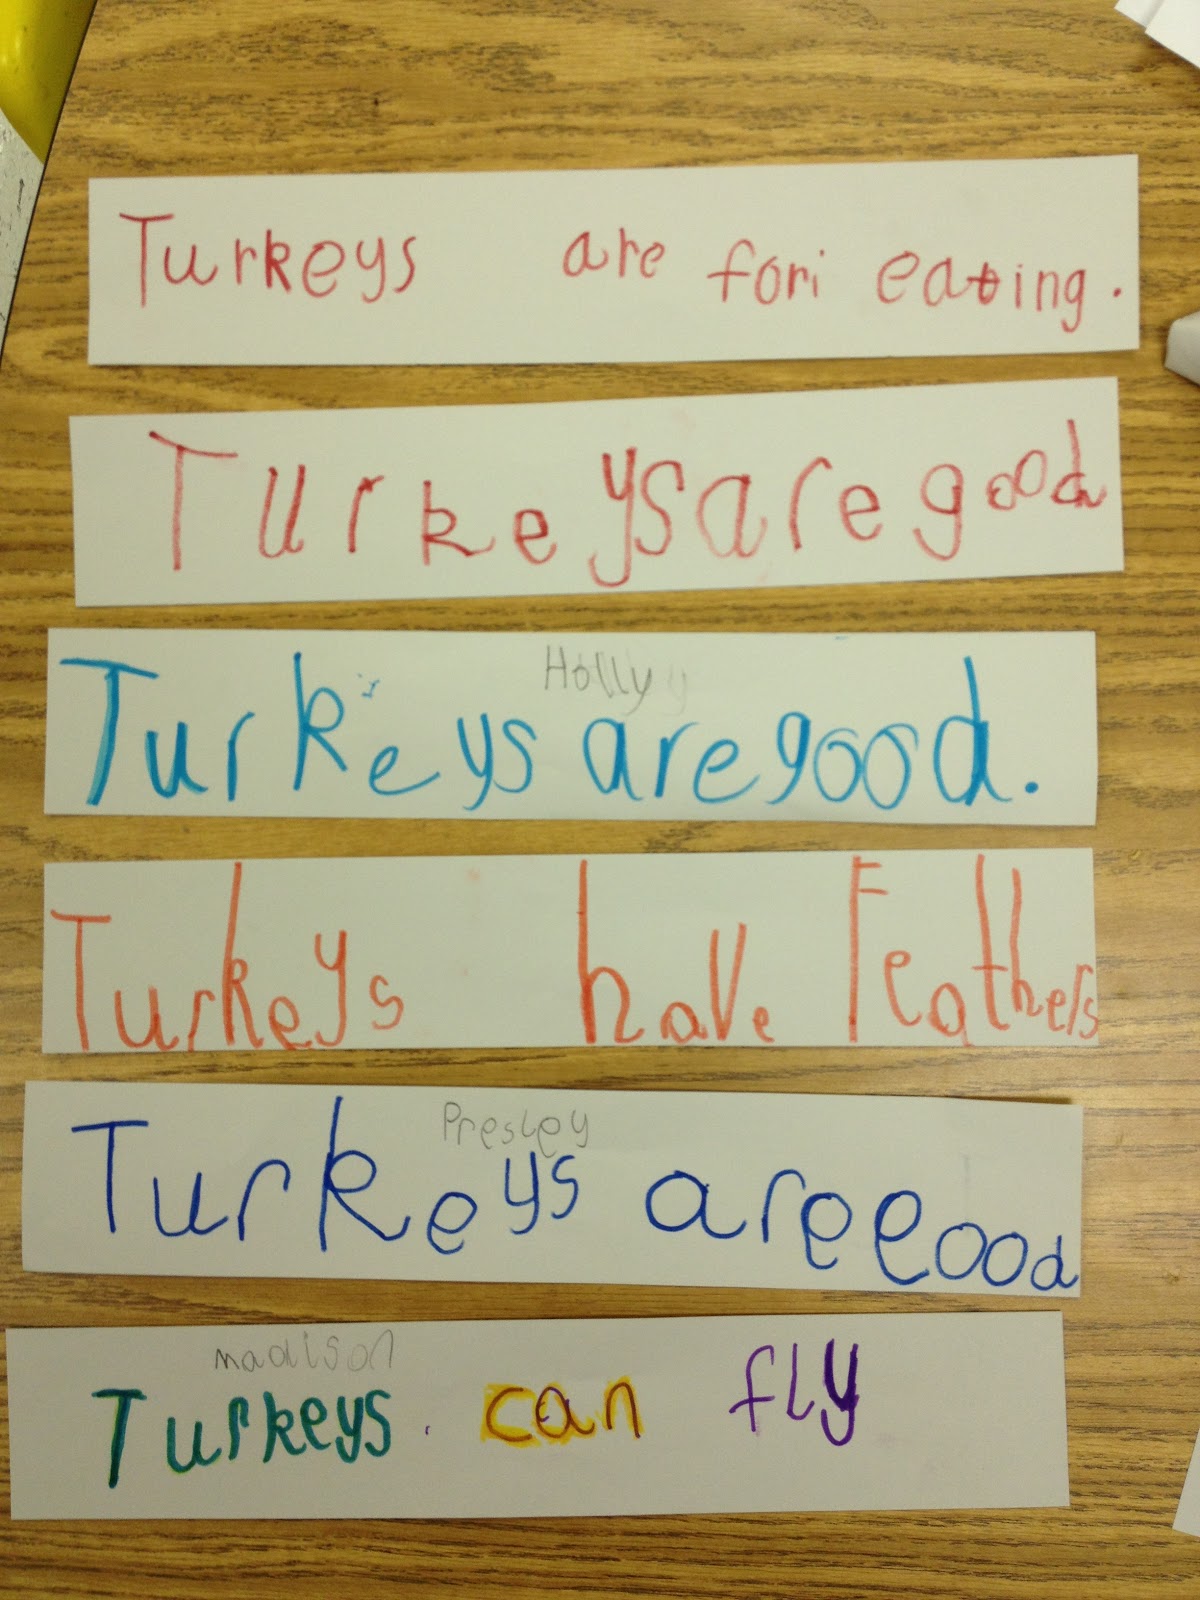 Turkeys are fori eating.
Turkeysaregood
Holly
Turkeys aregood.
Turkeys have Feathers
Presley
Turkeys areeood
madison
Turkeys. can fly